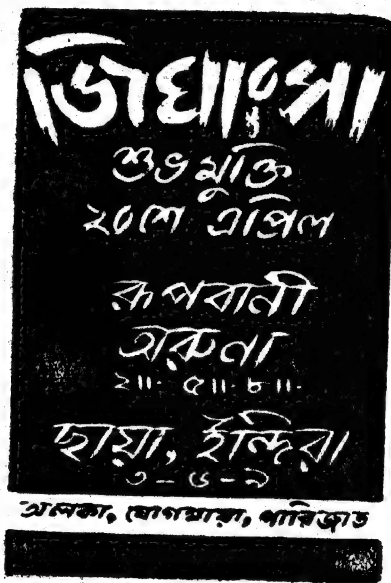 জিঘাংসা
শুভমুক্তি
২০শে এপ্রিল
রূপবানী
অরুণা
২॥- ৫॥- ৮॥-
ছায়া, ইন্দিরা
৩-৬-৯
অলকা, যোগমায়া, পারিজাত